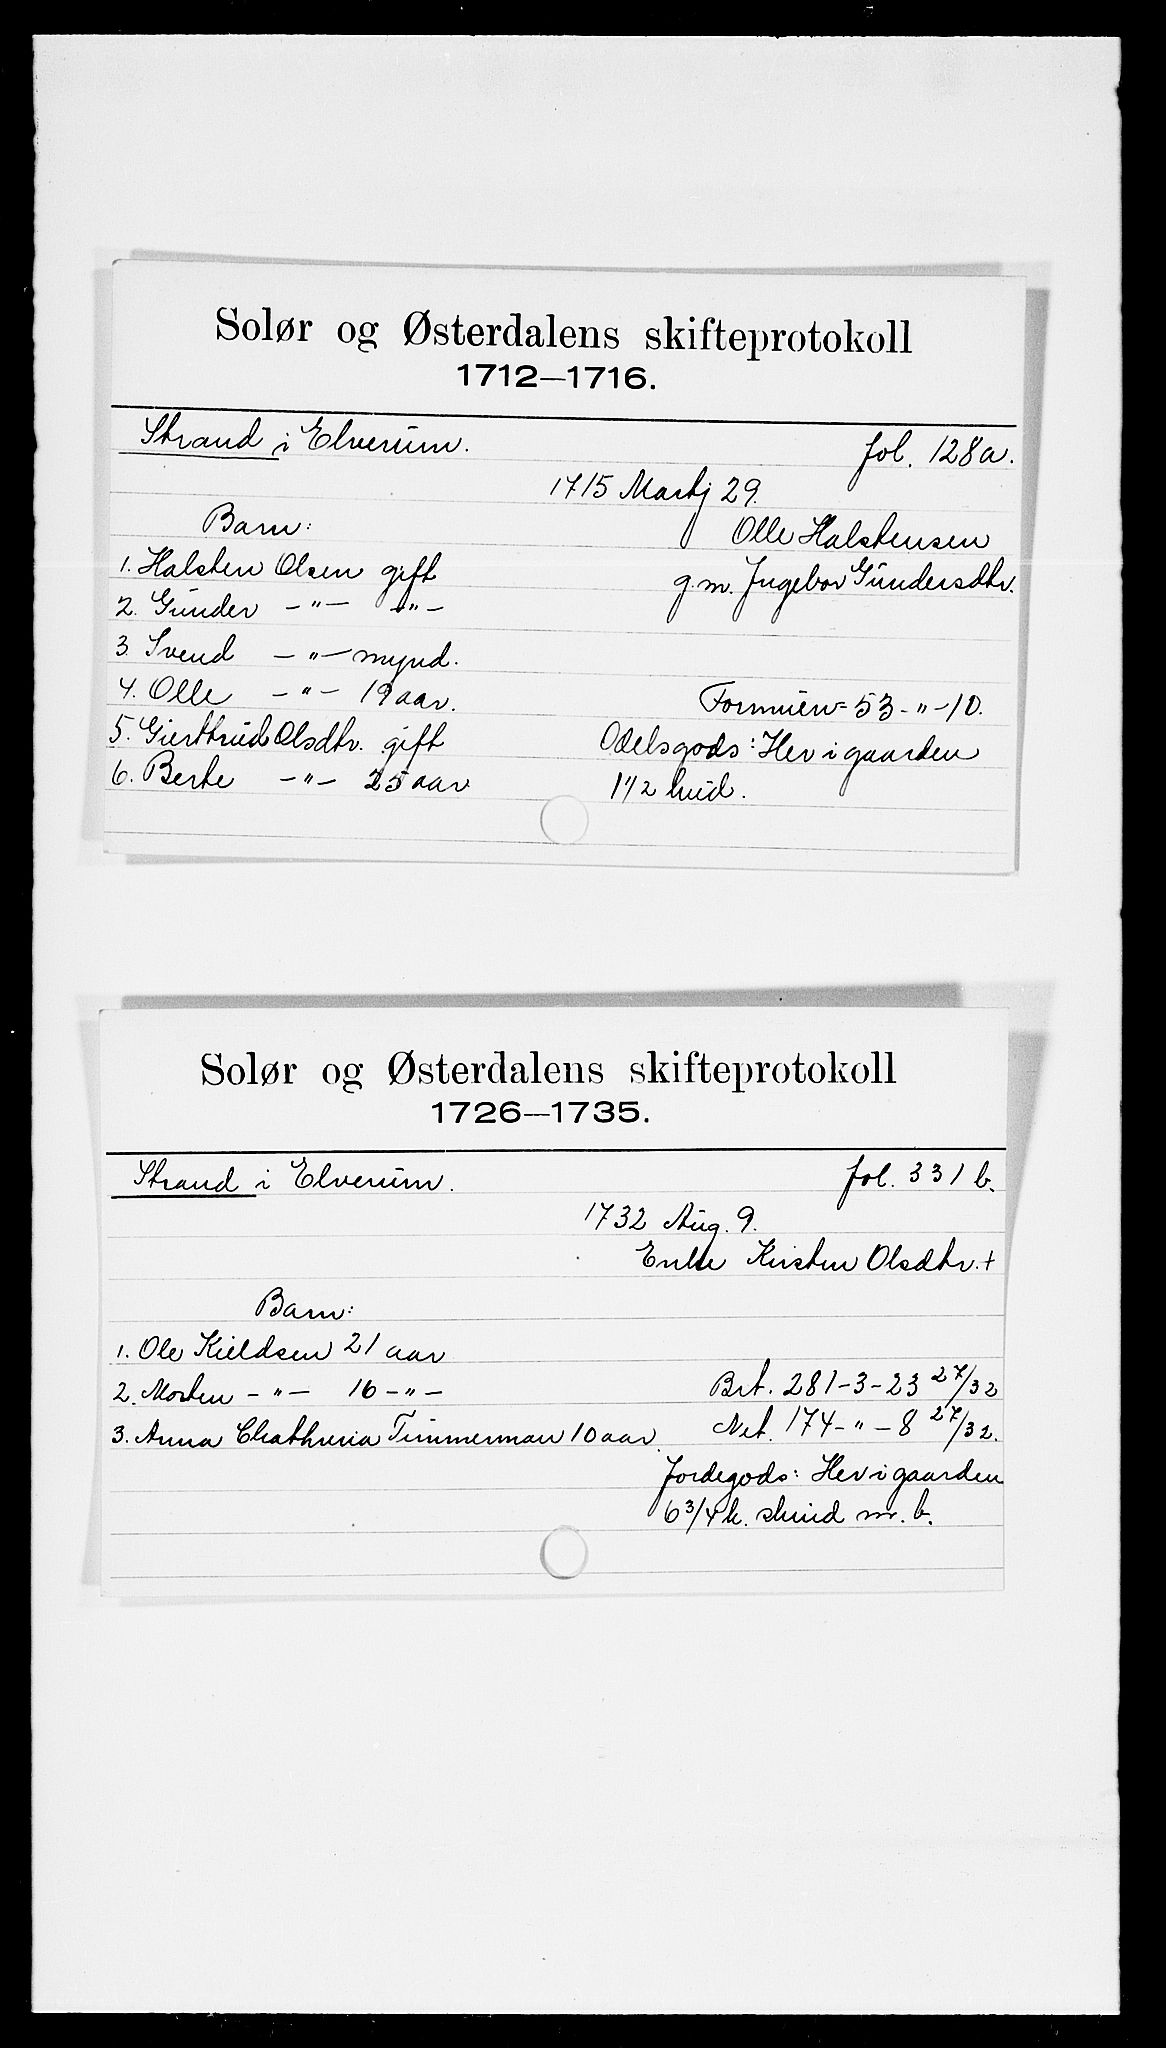 Solør og Østerdalens skifteprotokoll
1712—1716.
Strand i Elverum. fol. 128a.
1715 Martj 29.
Barn: Olle Halstensen
1. Halsten Olsen gift g.m. Ingebor Gundersdtr.
2. Gunder -"- -"-
3. Svend -"- mynd.
4. Olle -"- 19 aar. Formuen = 53-"-10.
5. Gierttrud Olsdtr. gift Odelsgods: Her i gaarden
6. Berte -"- 25 aar 1 1/2 hud.
Solør og Østerdalens skifteprotokoll
1726—1735.
Strand i Elverum. fol. 331 b.
1732 Aug. 9.
Enke Kirsten Olsdtr. +
Barn:
1. Ole Kieldsen 21 aar
2. Morten -"- 16 -"- Brt. 281-3-23 27/32
3. Anna Chathrina Timmerman 10 aar. Net. 174-"-8 27/32.
Jordegods: Her i gaarden
6 3/4 k. skind m. b.